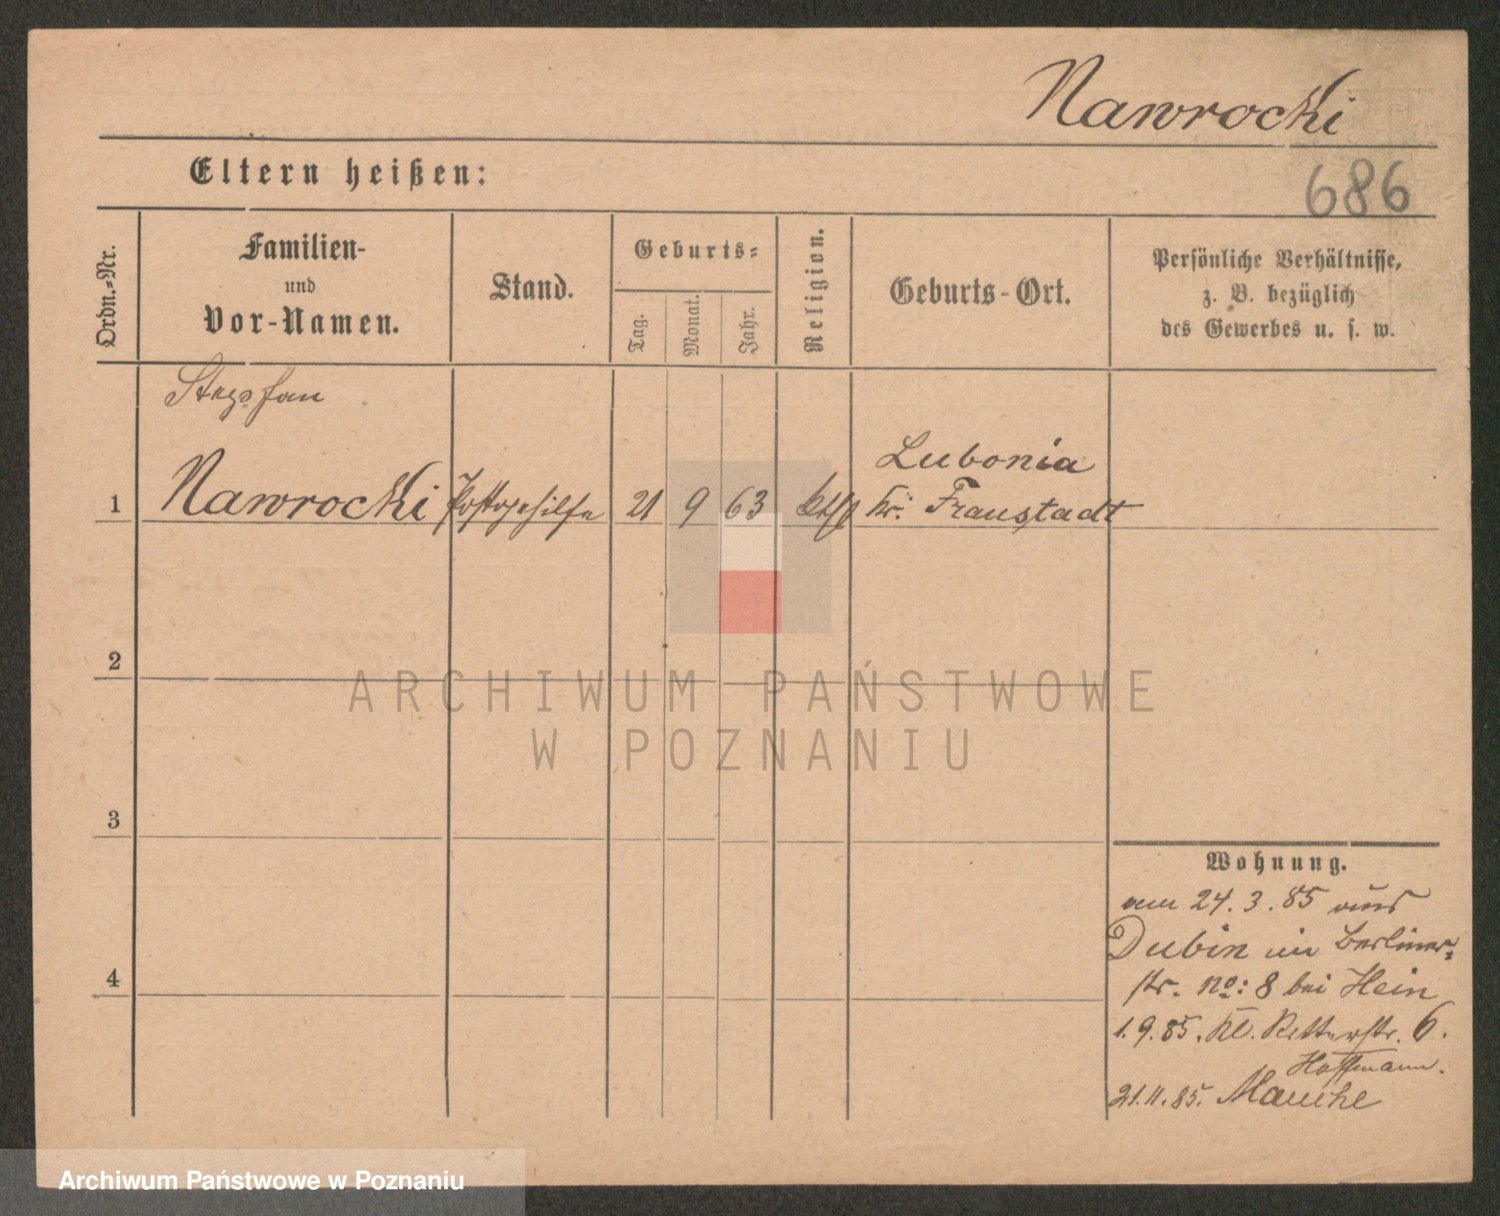 Nawrocki
Eltern heißen:
686
Ordn.-Nr.
Familien-
und
Vor-Namen.
Stand.
Geburts-
Tag.
Monat.
Jahr.
Religion.
Geburts-Ort.
Persönliche Verhältnisse,
z. B. bezüglich
des Gewerbes u. s. w.
Stephan
1 Nawrocki Postgehilfe 21 9 63 kth Lubonia
Kr. Fraustadt
2
3
4
ARCHIWUM PAŃSTWOWE
W POZNANIU
Wohnung.
am 24. 3. 85 aus
Dubin in Berliner-
str. No: 8 bei Hein
1. 9. 85. Kl. Ritterstr. 6.
Hoffmann.
21. 11. 85.
Archiwum Państwowe w Poznaniu